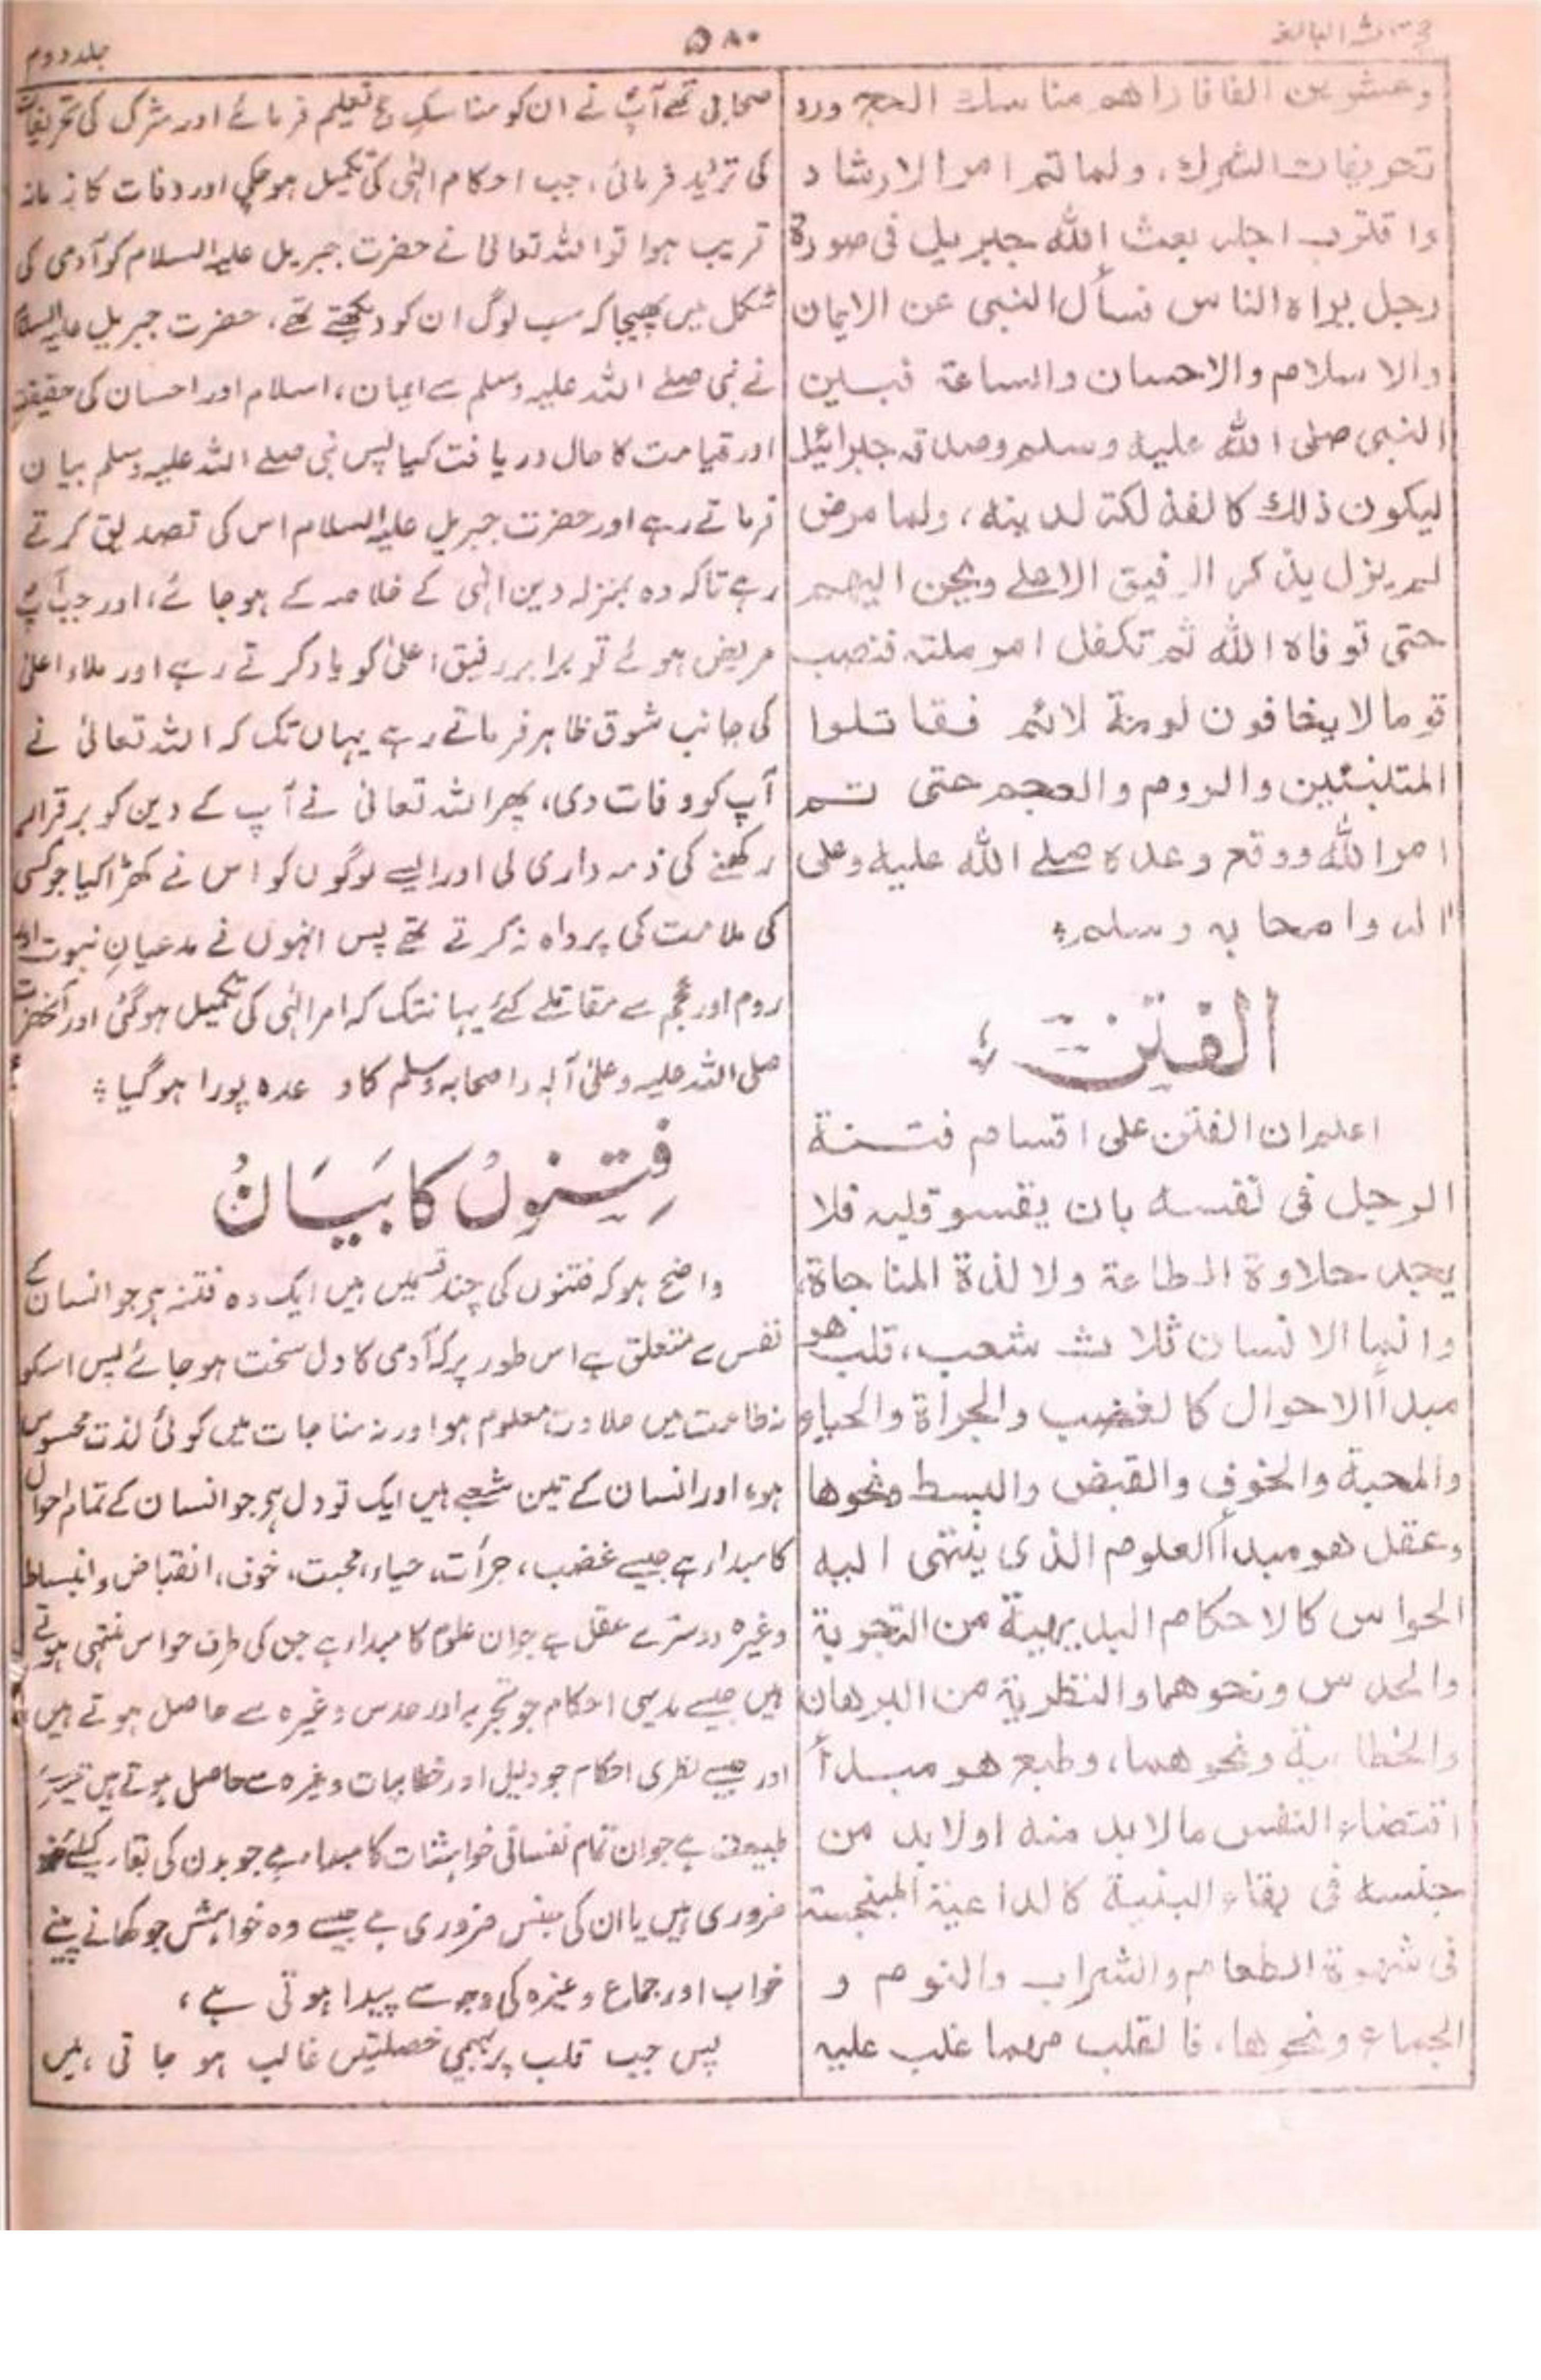 حجۃ اللہ البالغہ
۵۸۰
جلد دوم
وعشرین الفا فاراهم مناسك الحج ورد
تحریفات الشرك، ولما تم امر الارشاد
واقترب اجله بعث الله جبریل فی صورة
رجل یراه الناس فسأل النبی عن الایمان
والاسلام والاحسان والساعة فبین
النبی صلی الله علیه وسلم وصدقه جبرائیل
لیکون ذلك كالفذلكة لدینه، ولما مرض
لم یزل یذكر الرفیق الاعلے ویحن الیهم
حتی توفاه الله ثم تكفل امر ملته فنصب
قوما لا یخافون لومة لائم فقاتلوا
المتنبئین والروم والعجم حتی تم
امر الله ووقع وعده صلے الله علیه وعلی
اله واصحابه وسلم؛
الفتن؛
اعلم ان الفتن علی اقسام فتنة
الرجل فی نفسه بان یقسو قلبه فلا
یجد حلاوة الطاعة ولا لذة المناجاة،
وانما الانسان ثلاث شعب، قلب هو
مبدأ الاحوال كالغضب والجرأة والحیاء
والمحبة والخوف والقبض والبسط ونحوها
وعقل هو مبدأ العلوم الذی ینتهی الیه
الحواس كالاحكام البدیهیة من التجربة
والحدس ونحوهما والنظریة من البرهان
والخطابیة ونحوهما، وطبع هو مبدأ
اقتضاء النفس ما لا بد منه او لا بد من
جنسه فی بقاء البنیة كالداعیة المنبجسة
فی شهوة الطعام والشراب والنوم و
الجماع ونحوها، فالقلب مهما غلب علیه
صحابی تھے آپؐ نے ان کو مناسکِ حج تعلیم فرمائے اور شرک کی تحریفات
کی تردید فرمائی، جب احکام الٰہی کی تکمیل ہو چکی اور وفات کا زمانہ
قریب ہوا تو اللہ تعالیٰ نے حضرت جبریل علیہ السلام کو آدمی کی
شکل میں بھیجا کہ سب لوگ ان کو دیکھتے تھے، حضرت جبریل علیہ السلام
نے نبی صلے اللہ علیہ وسلم سے ایمان، اسلام اور احسان کی حقیقت
اور قیامت کا حال دریافت کیا پس نبی صلے اللہ علیہ وسلم بیان
فرماتے رہے اور حضرت جبریل علیہ السلام اس کی تصدیق کرتے
رہے تاکہ وہ بمنزلہ دین الٰہی کے خلاصہ کے ہو جائے، اور جب آپؐ
مریض ہوئے تو برابر رفیق اعلیٰ کو یاد کرتے رہے اور ملاء اعلیٰ
کی جانب شوق ظاہر فرماتے رہے یہاں تک کہ اللہ تعالیٰ نے
آپ کو وفات دی، پھر اللہ تعالیٰ نے آپ کے دین کو برقرار
رکھنے کی ذمہ داری لی اور ایسے لوگوں کو اس نے کھڑا کیا جو کسی
کی ملامت کی پرواہ نہ کرتے تھے پس انہوں نے مدعیانِ نبوت اور
روم اور عجم سے مقاتلے کئے یہانتک کہ امر الٰہی کی تکمیل ہو گئی اور آنحضرت
صلی اللہ علیہ وعلیٰ آلہ واصحابہ وسلم کا وعدہ پورا ہو گیا؛
فِتنوں کا بَیَانُ
واضح ہو کہ فتنوں کی چند قسمیں ہیں ایک وہ فتنہ ہے جو انسان کے
نفس سے متعلق ہے اس طور پر کہ آدمی کا دل سخت ہو جائے پس اسکو
نہ طاعت میں حلاوت معلوم ہو اور نہ مناجات میں کوئی لذت محسوس
ہو، اور انسان کے تین شعبے ہیں ایک تو دل ہے جو انسان کے تمام احوال
کا مبداء ہے جیسے غضب، جرأت، حیاء، محبت، خوف، انقباض و انبساط
وغیرہ دوسرے عقل ہے جو ان علوم کا مبداء ہے جن کی طرف حواس منتہی ہوتے
ہیں جیسے بدیہی احکام جو تجربہ اور حدس وغیرہ سے حاصل ہوتے ہیں
اور جیسے نظری احکام جو دلیل اور خطابیات وغیرہ سے حاصل ہوتے ہیں تیسرے
طبیعت ہے جو ان تمام نفسانی خواہشات کا مبداء ہے جو بدن کی بقاء کیلئے
ضروری ہیں یا ان کی جنس ضروری ہے جیسے وہ خواہش جو کھانے پینے
خواب اور جماع وغیرہ کی وجہ سے پیدا ہوتی ہے،
پس جب قلب پر بہیمی خصلتیں غالب ہو جاتی ہیں